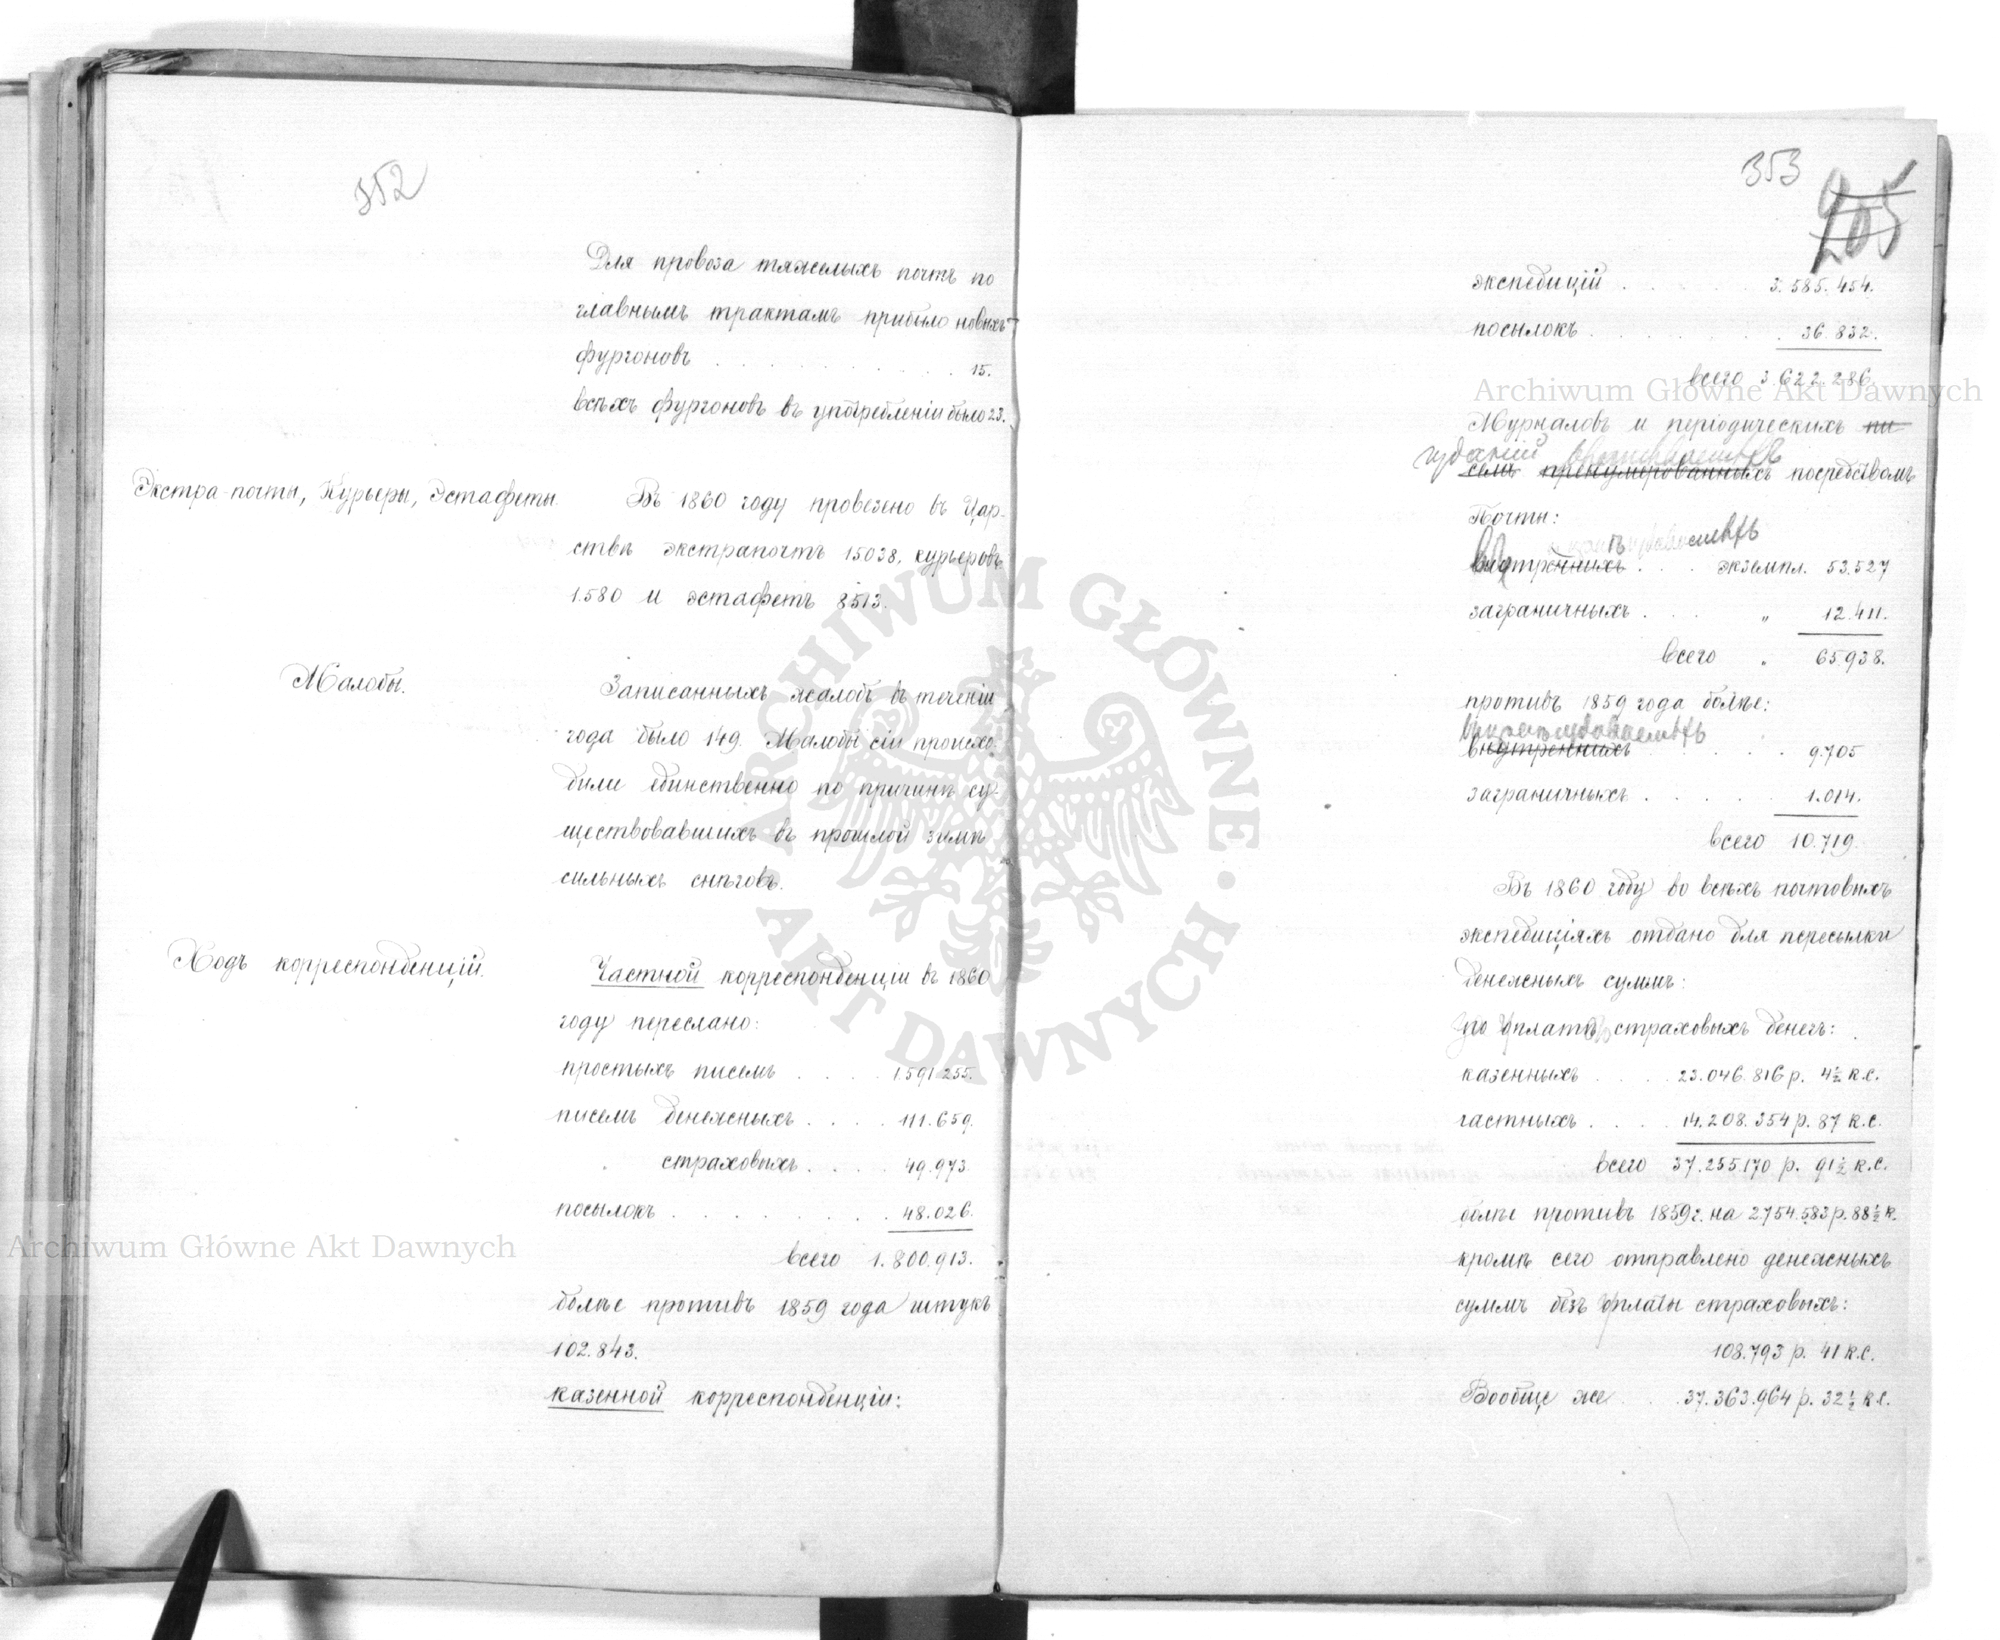 352
Для провоза тяжелыхъ почтъ по
главнымъ трактамъ прибыло новыхъ
фургоновъ . . . . . . . . . . 15.
всѣхъ фургоновъ въ употребленіи было 23.
Экстра-почты, Курьеры, Эстафеты.
Въ 1860 году провезено въ Цар-
ствѣ экстрапочтъ 15038, курьеровъ
1.580 и эстафетъ 8513.
Жалобы.
Записанныхъ жалобъ въ теченіи
года было 149. Жалобы сіи происхо-
дили единственно по причинѣ су-
ществовавшихъ въ прошлой зимѣ
сильныхъ снѣговъ.
Ходъ корреспонденцій.
Частной корреспонденціи въ 1860
году переслано:
простыхъ писемъ . . . . 1.591.255.
писемъ денежныхъ . . . . 111.659.
страховыхъ . . . . 49.973
посылокъ . . . . . . . . 48.026.
всего 1.800.913.
болѣе противъ 1859 года штукъ
102.843.
казенной корреспонденціи:
353
205
экспедицій . . . . . 3.585.454.
посылокъ . . . . . . . . 36.832.
всего 3.622.286
Журналовъ и періодическихъ пи
изданій
семъ пренумерованныхъ посредствомъ
Почты:
внутреннихъ . . . экземпл. 53.527
заграничныхъ . . . " 12.411.
всего " 65.938.
противъ 1859 года болѣе:
внутреннихъ . . . . . 9.705
заграничныхъ . . . . . 1.014.
всего 10.719.
Въ 1860 году во всѣхъ почтовыхъ
экспедиціяхъ отдано для пересылки
денежныхъ суммъ:
по уплатѣ страховыхъ денегъ:
казенныхъ . . . . 23.046.816 р. 4½ к.с.
частныхъ . . . . 14.208.354 р. 87 к.с.
всего 37.255.170 р. 91½ к.с.
болѣе противъ 1859 г. на 2.754.583 р. 88½ к.
кромѣ сего отправлено денежныхъ
суммъ безъ уплаты страховыхъ:
108.793 р. 41 к.с.
Вообще же . . . 37.363.964 р. 32½ к.с.
Archiwum Główne Akt Dawnych
Archiwum Główne Akt Dawnych
ARCHIWUM GŁÓWNE · AKT DAWNYCH